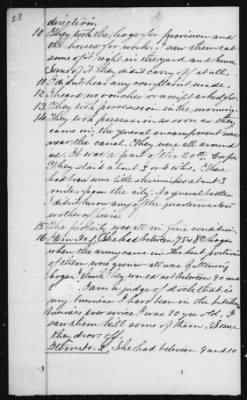 22
direction.
10. They took the hogs for provision and
the horses for work. I saw them eat
some of it right in the yard and house
Some of it they did carry off at all.
11. I didn't hear any complaint made
12. I heard no voucher or receipt asked for
13. They took possession in the morning.
14. They took possession as soon as they
came in, the general encampment was
near the canal. They were all around
us. It was a part of the 20th Corps
They staid about 3 or 4 wks. There
had been some little skirmishes about 3
miles from the city. No general battle
I didn't know any of the quartermasters
or other officers
15. The property was all in fine condition.
16. Item No 1. She had between 75 & 80 hogs
when the army came in the biggest portion
of them were grown all was of
hogs. I think they would net between 90 and
I am a judge of stock that is
my business I have been in the butchering
business ever since I was 20 year old. I
saw them kill some of them. Some
they drove off.
Item No 2. She had between 9 and 10